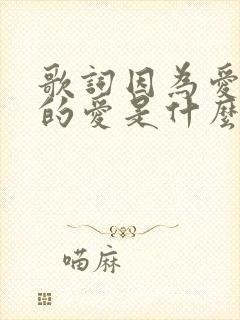 歌詞因為愛
的愛是什麼
喵麻